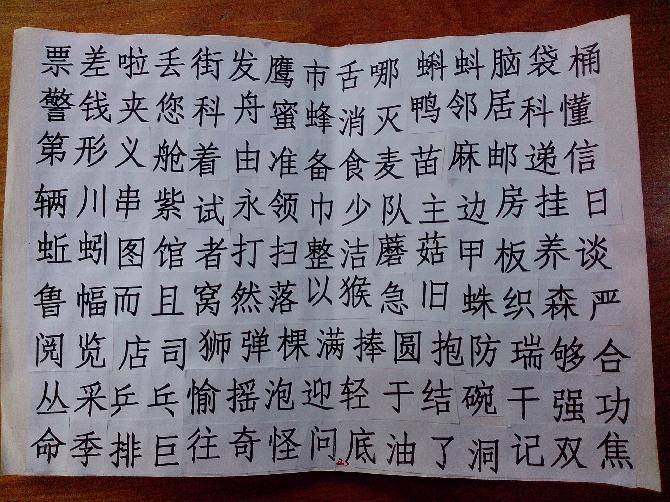 票差啦丢街发鹰市舌哪蝌蚪脑袋桶
警钱夹您科舟蜜蜂消灭鸭邻居科懂
第形义舱着由准备食麦苗麻邮递信
辆川串紫试永领巾少队主边房挂日
蚯蚓图馆者打扫整洁蘑菇甲板养谈
鲁幅而且窝然落以猴急旧蛛织森严
阅览店司狮弹棵满捧圆抱防瑞够合
丛采乒乓愉摇泡迎轻于结碗干强功
命季排巨往奇怪问底油了洞记双焦